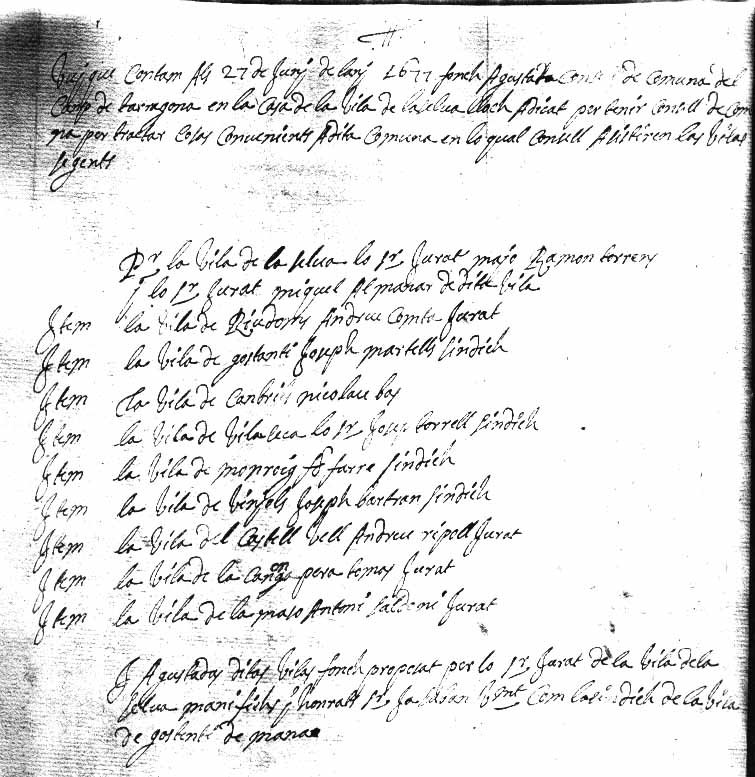 Vuy que Contam Als 27 de Juny de lany 1677 fonch Agustada Consell de Comuna del
Camp de tarragona en la Casa de la Vila de laselva lloch Adicat per tenir Consell de Comu
na per trattar Cosas Convenients Adita Comuna en lo qual Consell Asistiren las Vilas
segents
Pr la Vila de la selva lo Sr Jurat majo Ramon torrens
j lo Sr Jurat miquel Almanar de dita Vila
Jtem la Vila de Riudoms Andreu Comte Jurat
Jtem la Vila de gostanti Joseph martells Sindich
Jtem la Vila de Cambrils nicolau bas
Jtem la Vila de Vila seca lo Sr Josep torrell Sindich
Jtem la Vila de monroig farre Sindich
Jtem la Vila de Vinjols Joseph bartran Sindich
Jtem la Vila del Castell Vell Andreu ripoll Jurat
Jtem la Vila de la Canonga pera tomas Jurat
Jtem la Vila de la maso Antoni saldoni Jurat
J Agustadas ditas Vilas fonch proposat per lo Sr Jurat de la Vila dela
selva j honratt Sr Ja saban Vmt Com lo sindich de la Vila
de gostenti de mana